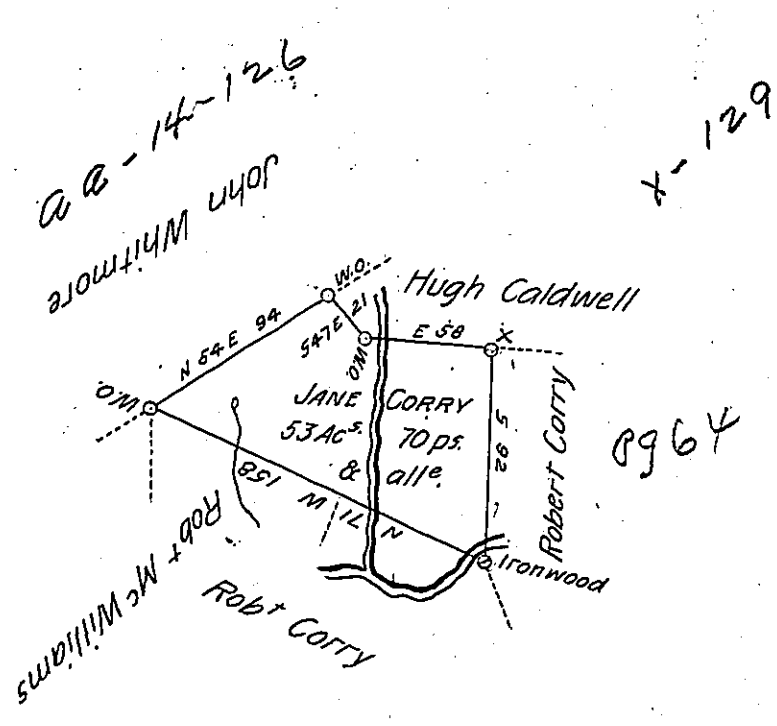 aa-14-126
X-129
John Whitmore
W.O.
Hugh Caldwell
N 54 E 94
S47E 21
W.O.
E 58
X
W.O.
JANE CORRY
53 Acs. 70 ps.
& alle.
S 92
Robert Corry
Pg 64
N 71 W 158
Ironwood
Robt McWilliams
Robt Corry